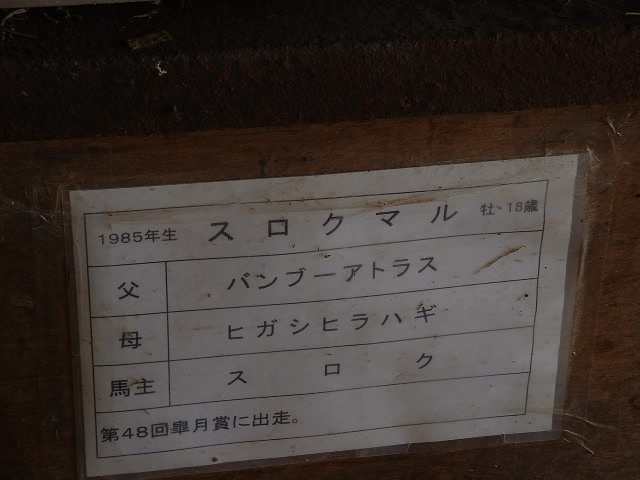 1985年生 スロクマル 牡・18歳
父 バンブーアトラス
母 ヒガシヒラハギ
馬主 スロク
第48回皐月賞に出走。